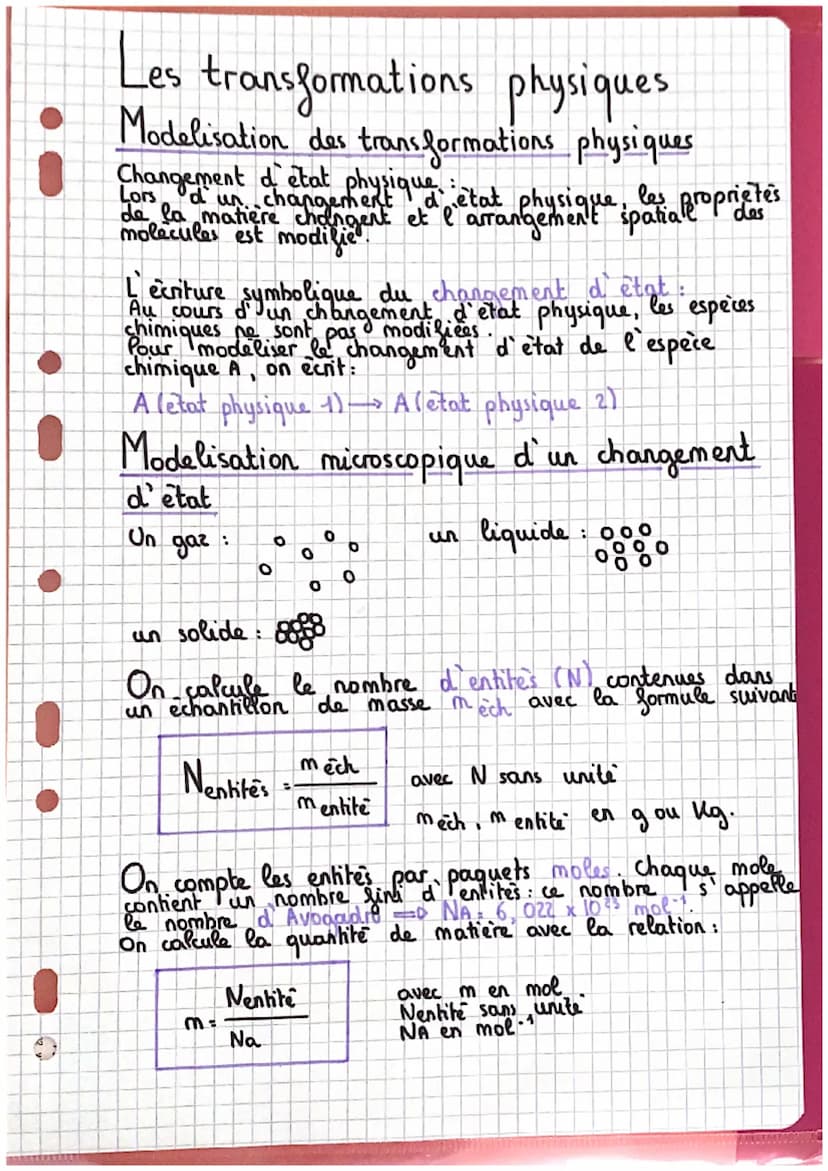 Les transformations physiques
Modelisation des transformations physiques
Changement d'état physique :
Lors d'un changement d'état physique, les propriétés
de la matière changent et l'arrangement spatiale des
molécules est modifié.
L'écriture symbolique du changement d'état :
Au cours d'un changement d'état physique, les espèces
chimiques ne sont pas modifiées.
Pour modéliser le changement d'état de l'espèce
chimique A, on écrit :
A (état physique 1) → A (état physique 2)
Modelisation microscopique d'un changement
d'état
Un gaz : un liquide :
un solide :
On calcule le nombre d'entités (N) contenues dans
un échantillon de masse m éch avec la formule suivant
Nentités = m éch / m entité
avec N sans unité
m éch, m entité en g ou Kg.
On compte les entités par paquets moles. Chaque mole
contient un nombre fini d'entités : ce nombre s'appelle
le nombre d'Avogadro => NA = 6,022 x 10²³ mol⁻¹.
On calcule la quantité de matière avec la relation :
m = Nentité / Na
avec m en mol
Nentité sans unité.
NA en mol⁻¹